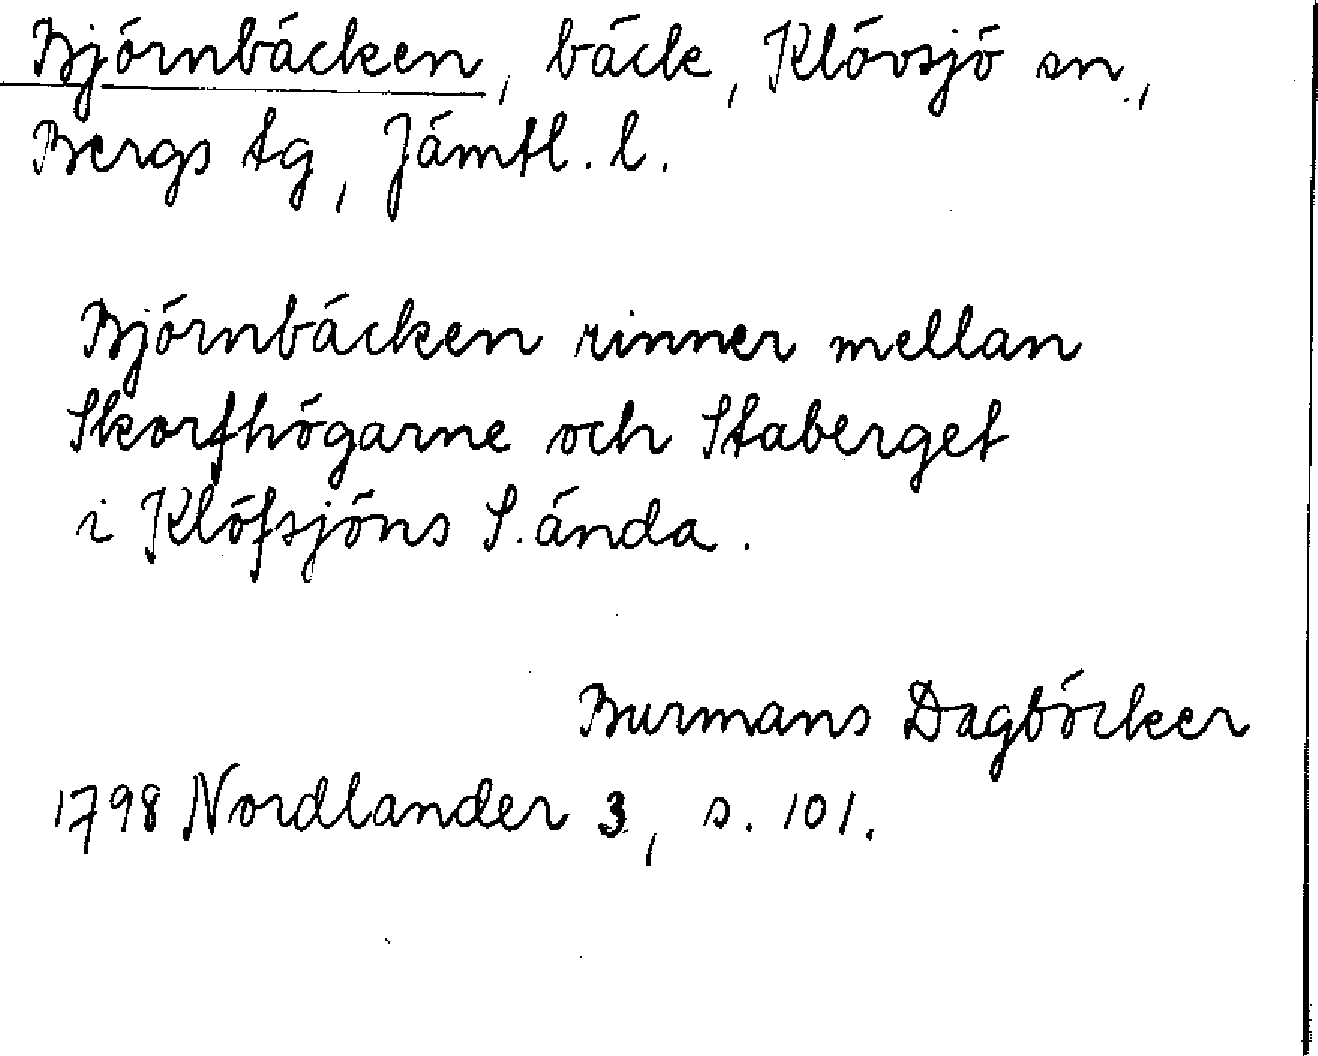 Björnbäcken, bäck, Klövsjö sn.,
Bergs tg, Jämtl. l.
Björnbäcken rinner mellan
Skorfhögarne och Staberget
i Klöfsjöns S. ända.
Burmans Dagböcker
1798 Nordlander 3, s. 101.